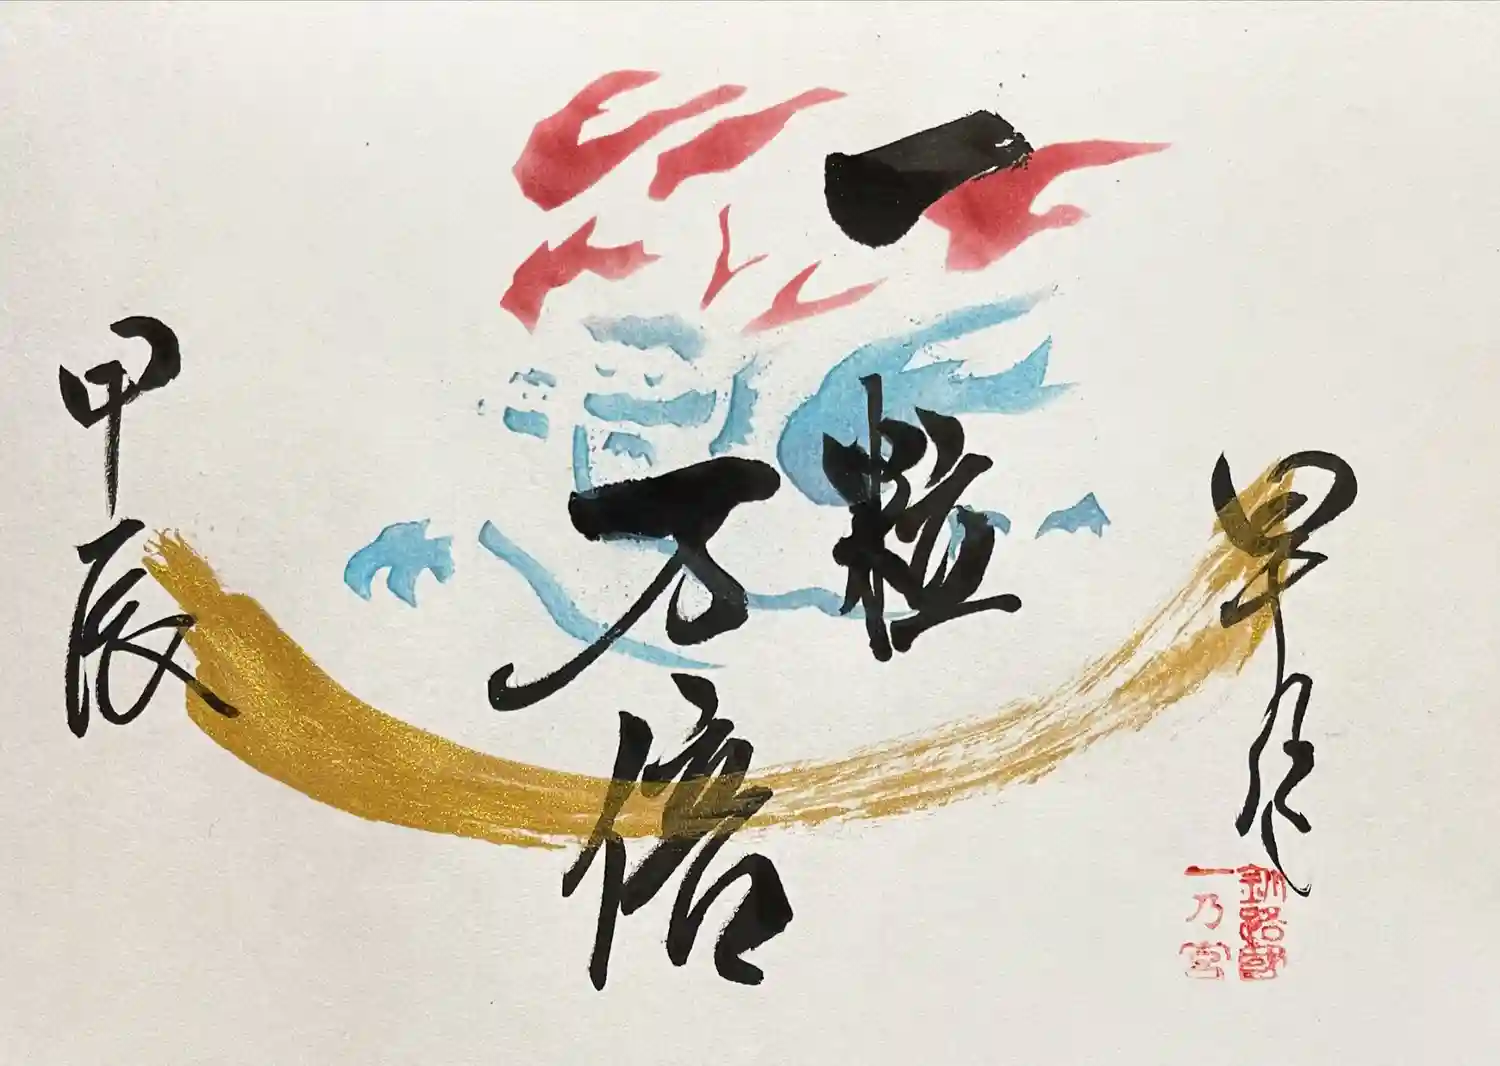 早月
釧路國
一乃宮
一粒
万倍
甲辰